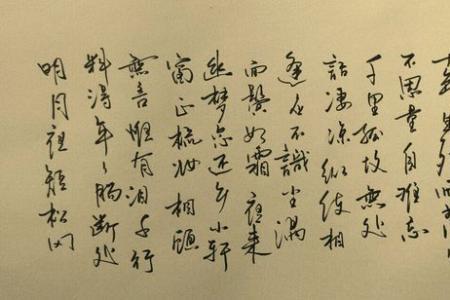 不思量自難忘
千里孤坟無處
話凄凉縱使相
逢应不識尘满
面鬓如霜夜来
幽梦忽还乡小轩
窗正梳妆相顧
無言惟有泪千行
料得年々腸断处
明月夜短松冈